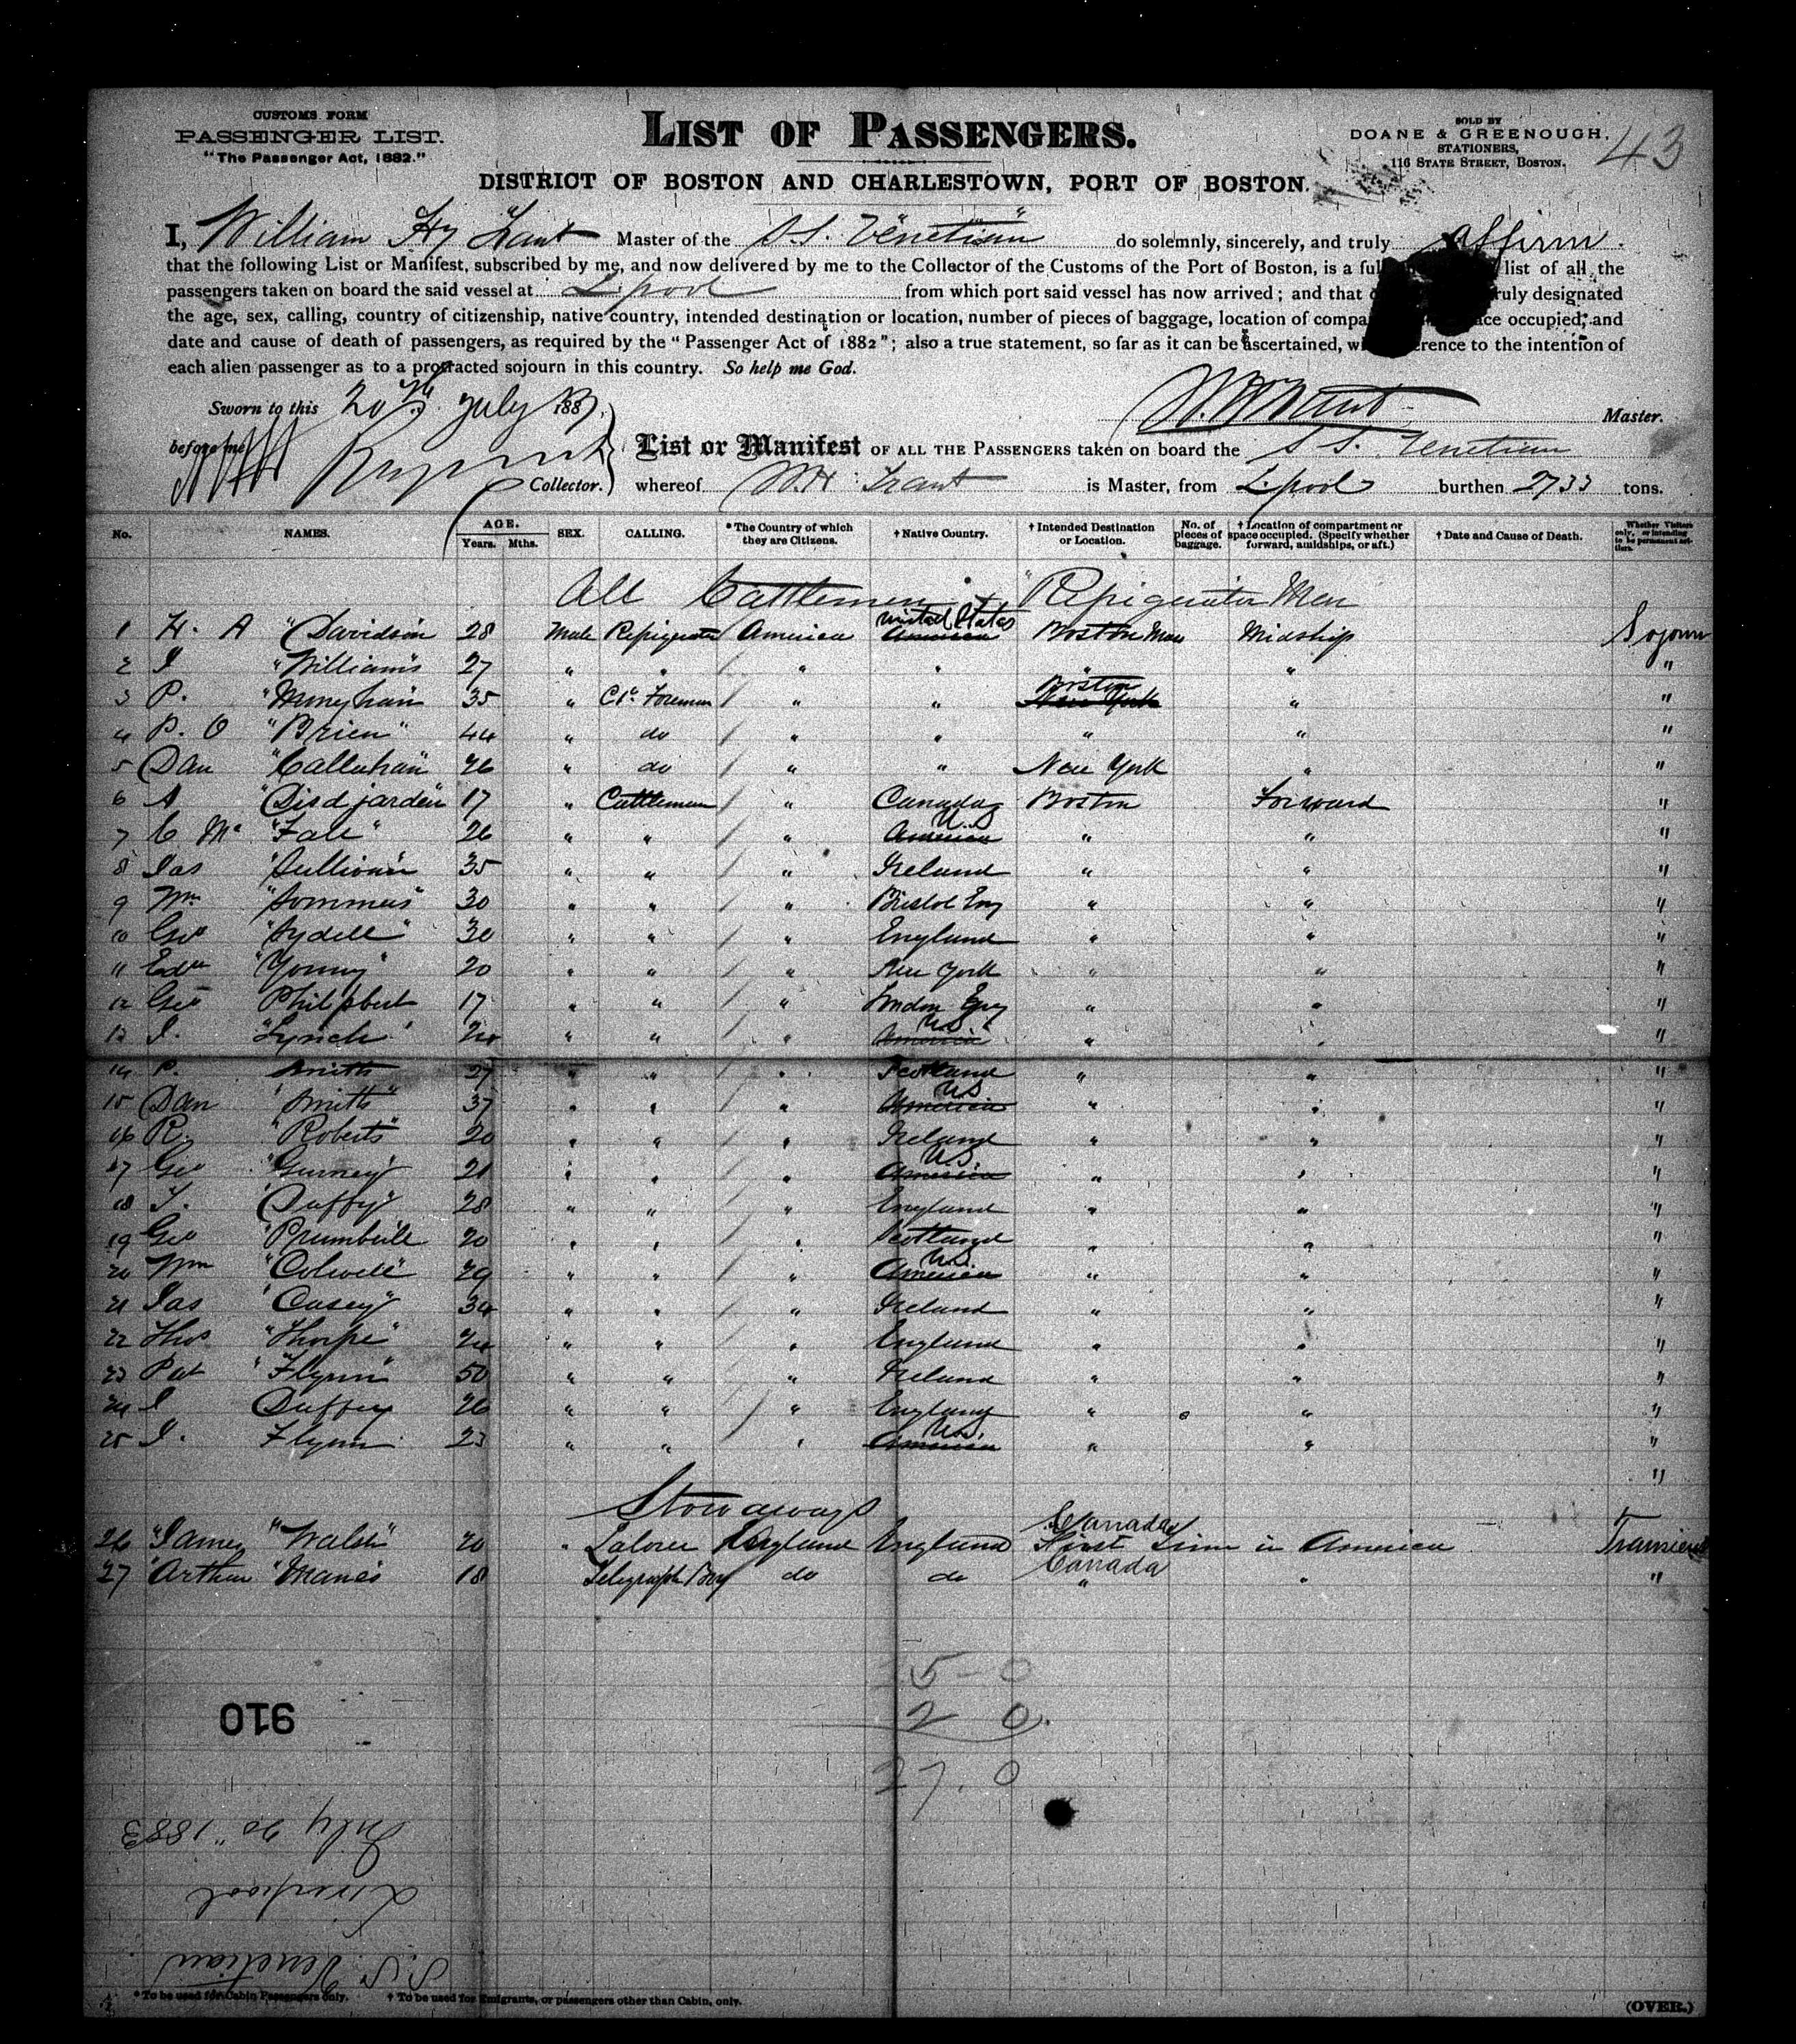 CUSTOMS FORM
PASSENGER LIST.
"The Passenger Act, 1882."
LIST OF PASSENGERS.
SOLD BY
DOANE & GREENOUGH,
STATIONERS,
116 STATE STREET, BOSTON.
43
DISTRICT OF BOSTON AND CHARLESTOWN, PORT OF BOSTON.
I, William Hy Trant Master of the S.S. Venetian do solemnly, sincerely, and truly affirm.
that the following List or Manifest, subscribed by me, and now delivered by me to the Collector of the Customs of the Port of Boston, is a ful list of all the
passengers taken on board the said vessel at L.pool from which port said vessel has now arrived; and that ruly designated
the age, sex, calling, country of citizenship, native country, intended destination or location, number of pieces of baggage, location of compa ce occupied; and
date and cause of death of passengers, as required by the "Passenger Act of 1882"; also a true statement, so far as it can be ascertained, wi erence to the intention of
each alien passenger as to a protracted sojourn in this country. So help me God.
Sworn to this 20th July 1883
before me Collector.
W. H. Trant Master.
List or Manifest OF ALL THE PASSENGERS taken on board the S S. Venetian
whereof W. H Trant is Master, from L.pool burthen 2733 tons.
No. NAMES. AGE. Years. Mths. SEX. CALLING. *The Country of which they are Citizens. †Native Country. †Intended Destination or Location. No. of pieces of baggage. †Location of compartment or space occupied. (Specify whether forward, amidships, or aft.) †Date and Cause of Death. Whether Visitors only, or intending to be permanent settlers.
All Cattlemen & Refrigerator Men
1 H. A "Davidson 28 Male Refrigerator America United States America Boston Mass Midship Sojourn
2 J "Williams 27 " " " " " " "
3 P. 35 " Cle Foreman " " Boston New York " "
4 P. O "Brien" 44 " do " " " " "
5 Dan "Callahan" 26 " do " " New York " "
6 A "Disdjarden" 17 " Cattleman " Canada Boston Forward "
7 C Mc "Fall" 26 " " " U.S America " " "
8 Jas "Sullivan" 35 " " " Ireland " " "
9 Wm "Sommers" 30 " " " Bristol Eng " " "
10 Geo "Sydell" 30 " " " England " " "
11 Edw "Young" 20 " " " New York " " "
12 Geo Philpbert 17 " " " London Eng " " "
13 J. "Lynch" 24 " " " U.S America " " "
14 P. Smith 27 " " " Scotland " " "
15 Dan "Smith" 37 " " " U.S America " " "
16 R. "Roberts" 20 " " " Ireland " " "
17 Geo "Gurney" 21 " " " U.S America " " "
18 T. "Duffy" 28 " " " England " " "
19 Geo 20 " " " Scotland " " "
20 Wm "Colwell" 29 " " " U.S. America " " "
21 Jas "Casey" 34 " " " Ireland " " "
22 Thos "Thorpe" 24 " " " England " " "
23 Pat "Flynn" 50 " " " Ireland " " "
24 J Duffey 26 " " " England " " "
25 J. Flynn 23 " " " U.S. America " " "
"
Stowaways
26 "James "Walsh" 20 " Laborer England England Canada First Time in America Transient
27 "Arthur 18 Telegraph Boy do do Canada " " "
5 - 0
2 0.
27. 0
910
July 20" 1883
Liverpool
S.S. Venetian
*To be used for Cabin Passengers only. †To be used for Emigrants, or passengers other than Cabin, only.
(OVER.)